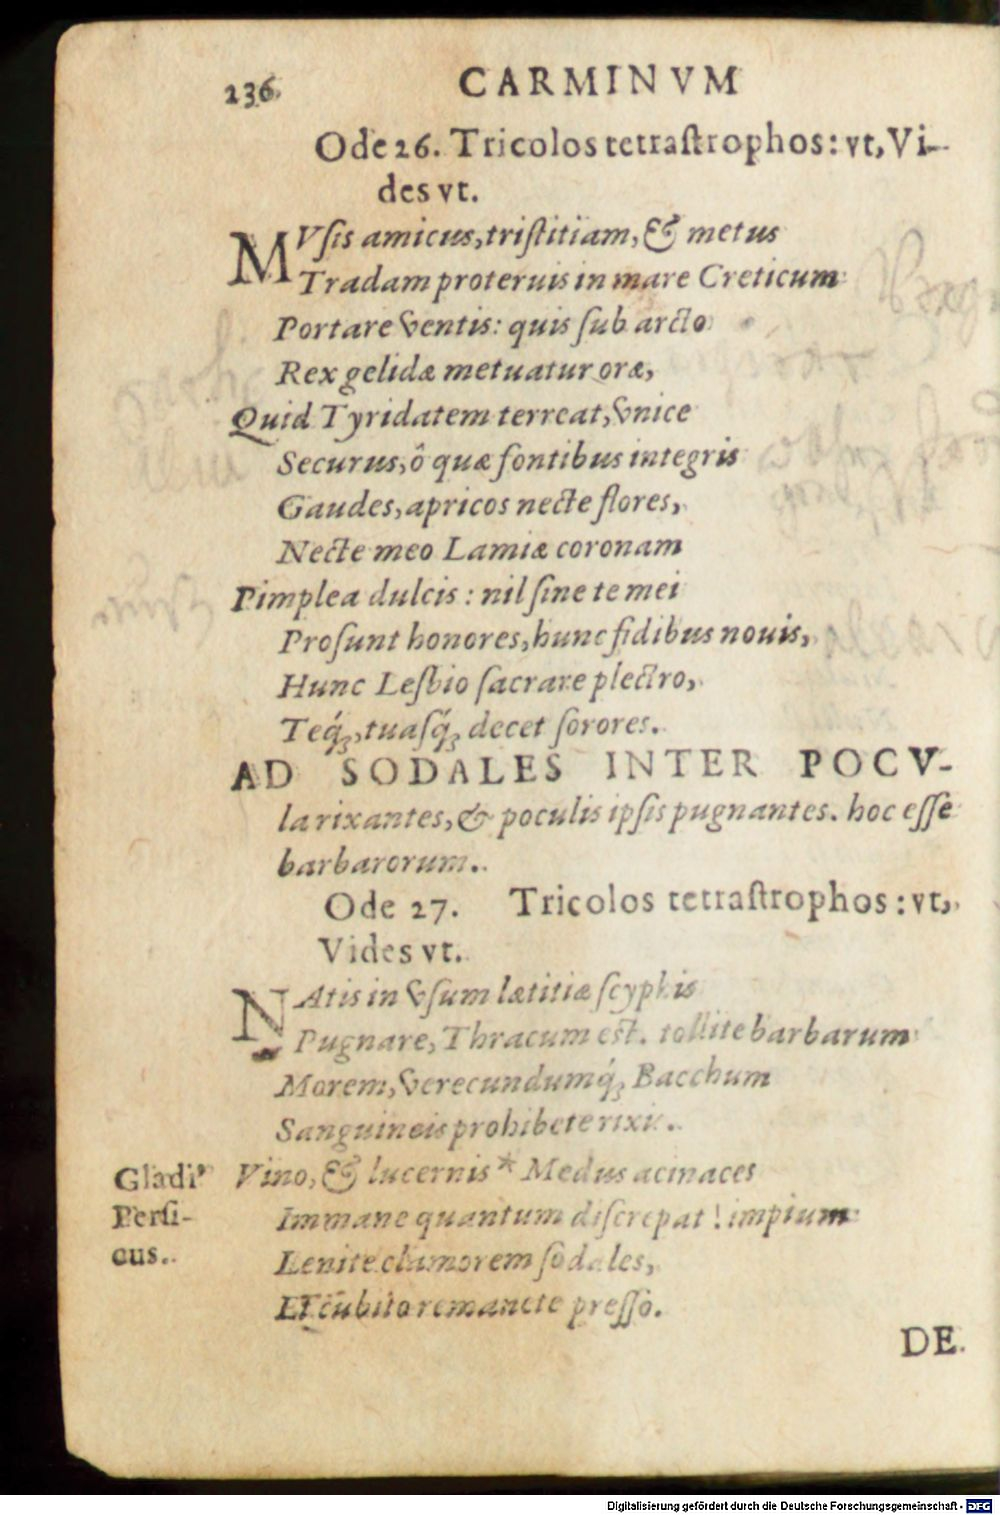 236. CARMINVM
Ode 26. Tricolos tetraſtrophos: vt, Vi-
des vt.
MVſis amicus, triſtitiam, & metus
Tradam proteruis in mare Creticum
Portare ventis: quis ſub arcto
Rex gelidæ metuatur oræ,
Quid Tyridatem terreat, vnice
Securus, ô quæ fontibus integris
Gaudes, apricos necte flores,
Necte meo Lamiæ coronam
Pimplea dulcis: nil ſine te mei
Proſunt honores, hunc fidibus nouis,
Hunc Leſbio ſacrare plectro,
Teq́ꝫ, tuaſq́ꝫ decet ſorores.
AD SODALES INTER POCV-
la rixantes, & poculis ipſis pugnantes. hoc eſſe
barbarorum.
Ode 27. Tricolos tetraſtrophos: vt,
Vides vt.
NAtis in vſum lætitiæ ſcyphis
Pugnare, Thracum eſt. tollite barbarum
Morem, verecundumq́ꝫ Bacchum
Sanguineis prohibete rixis.
Gladiꝰ Vino, & lucernis * Medus acinaces
Perſi- Immane quantum diſcrepat! impium
cus. Lenite clamorem ſodales,
Et cubito remanete preſſo.
DE.
Digitalisierung gefördert durch die Deutsche Forschungsgemeinschaft - DFG